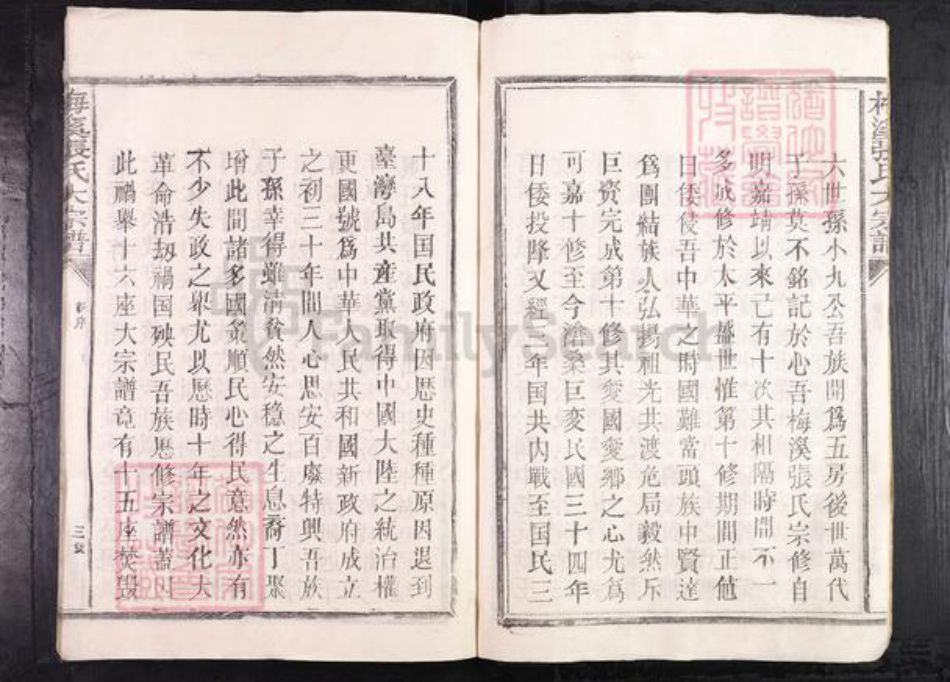 梅溪張氏大宗譜
六世孫小九公吾族開爲五房後世萬代
子孫莫不銘記於心吾梅溪張氏宗修自
明嘉靖以來已有十次其相隔時間不一
多成修於太平盛世惟第十修期間正值
日倭侵吾中華之時國難當頭族中賢達
爲團結族人弘揚祖光共渡危局毅然斥
巨資完成第十修其愛國愛鄉之心尤爲
可嘉十修至今滄桑巨變民國三十四年
日倭投降又經三年国共内戰至国民三
十八年国民政府因歷史種種原因退到
臺灣島共產黨取得中國大陸之統治權
更國號爲中華人民共和國新政府成立
之初三十年間人心思安百廢特興吾族
子孫幸得雖清貧然安穩之生息喬丁聚
增此間諸多國策順民心得民意然亦有
不少失政之舉尤以歷時十年之文化大
革命浩劫禍国殃民吾族歷修宗譜蓋因
此禍舉十六座大宗譜竟有十五座焚毀
梅溪張氏大宗譜
序
三
FamilySearch